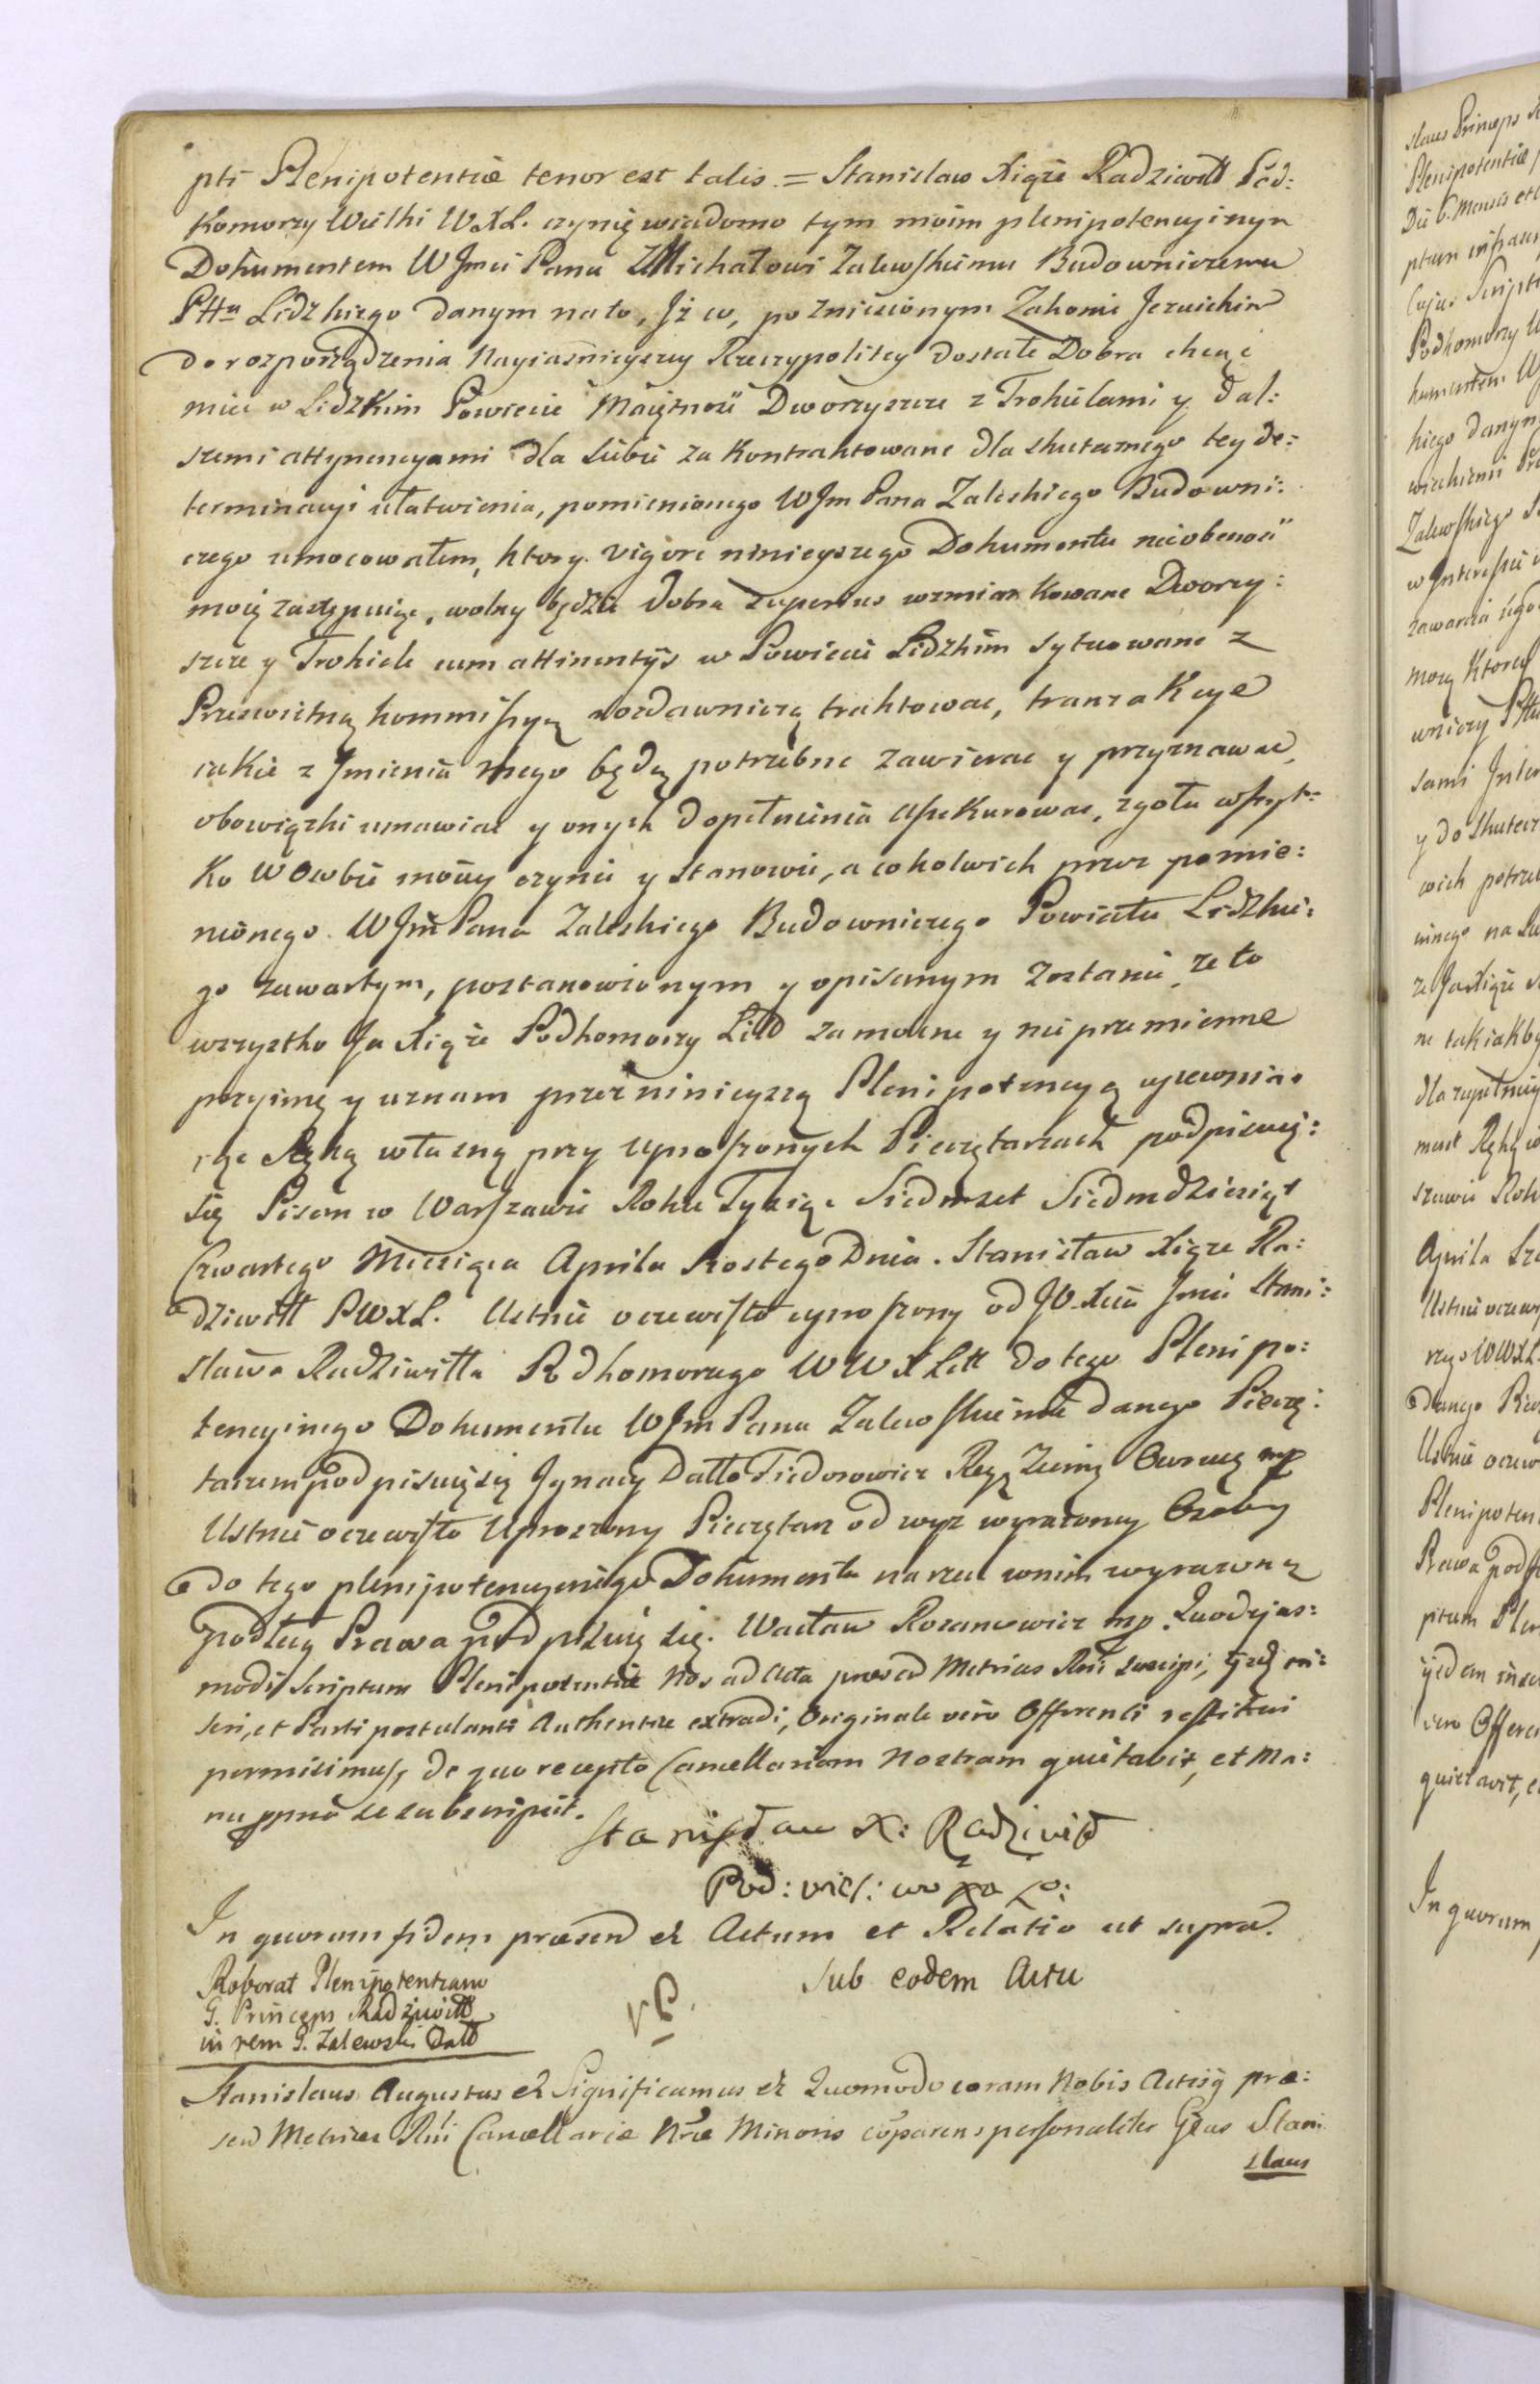 pti Plenipotentiæ tenor est talis = Stanislaw Xiąże Radziwiłł Pod:
Komorzy Wielki W.X.L. czynię wiadomo tym moim plenipotencyinym
Dokumentem WJmci Panu Michałowi Zalewskiemu Budowniczemu
Pttu Lidzkiego danym na to, Iż co, po zniesionym Zakonie Jezuickim
do rozporządzenia Nayiaśnieyszey Rzeczypolitey dostałe Dobra chcąc
mieć w Lidzkim Powiecie Maiętność Dworzyszcze z Trokielami y dal:
szemi attynencyami dla siebie za Kontraktowane dla skutecznego tey de:
terminacyi ułatwienia, pomienionego WJm Pana Zaleskiego Budowni:
czego umocowałem, ktory vigore ninieyszego Dokumentu nieobecność
moię zastępuiąc, wolny będzie dobra superius wzmiankowane Dworzy:
szcze y Trokiele cum attinentÿs w Powiecie Lidzkim sytuowane z
Prześwietną kommissyą rozdawniczą traktować, tranzakcye
iakie z Jmienia mego będą potrzebne zawierać y przyznawać,
obowiązki umawiać y onych dopełnienia assekurować, zgoła wszyt:
ko w Osobie moiey czynić y stanowić, a cokolwiek przez pomie:
nionego WJm Pana Zaleskiego Budowniczego Powiatu Lidzkie:
go zawartym, postanowionym y opisanym zostanie, że to
wszystko Ja Xiąże Podkomorzy Litt za mocne y nieprzemienne
przyimę y uznam przez ninieyszą Plenipotencyą upewnia:
iąc Ręką własną przy uproszonych Pieczętarzach podpisuię:
się Pisan w Warszawie Roku Tysiąc Siedmset Siedmdziesiąt
Czwartego Miesiąca Aprila Szostego Dnia. Stanisław Xiąze Ra:
dziwiłł PWXL. Ustnie oczewisto uproszony od JO Xcia Jmci Stani:
sława Radziwiłła Podkomorzego WWXLitt do tego Plenipo:
tencyinego Dokumentu WJm Panu Zalewskiemu danego Pieczę:
tarzem podpisuię się Jgnacy Datto Fiedorowicz Reg. Ziemi Owruc mp
Ustnie oczewisto Uproszony Pieczętarz od wyż wyrażoney Osoby
do tego plenipotencyinego Dokumentu na rzecz w nim wyrażoną
podług Prawa podpisuię się. Wacław Rozanowicz mp. Quod ejus:
modi scriptum Plenipotentiæ Nos ad acta præsen Metrices Rni suscipi, ijsq in:
seri, et Parti postulanti Authentice extradi, Originale vero Offerenti restitui
permisimus, de quo recepto Cancellariam Nostram quietavit, et Ma:
nu ppria se subscripsit.
Stanisław X: Radziwiłł
Pod: wiel: wo xo Lo:
In quorum fidem præsen et Actum et Relatio ut supra.
Roborat Plenipotentiam
G. Princeps Radziwiłł
in rem G. Zalewski Datt
Sub eodem Actu
Stanislaus Augustus et Significamus et Quomodo coram Nobis Actisq præ:
sen Metrices Rni Cancellariæ Nræ Minoris cõparens personaliter Gsus Stani
slaus
slaus Princeps
Plenipotentiæ
Die 6. Mensis
Cujus Scripti
Podkomorzy
kiego danym
Zalewskiego
zawarcia
mocy Ktorey
y do skutecz
Aprila
Ustnie oczew
danego
Ustnie oczew
Prawa
vero Offeren
quietavit,
In quorum